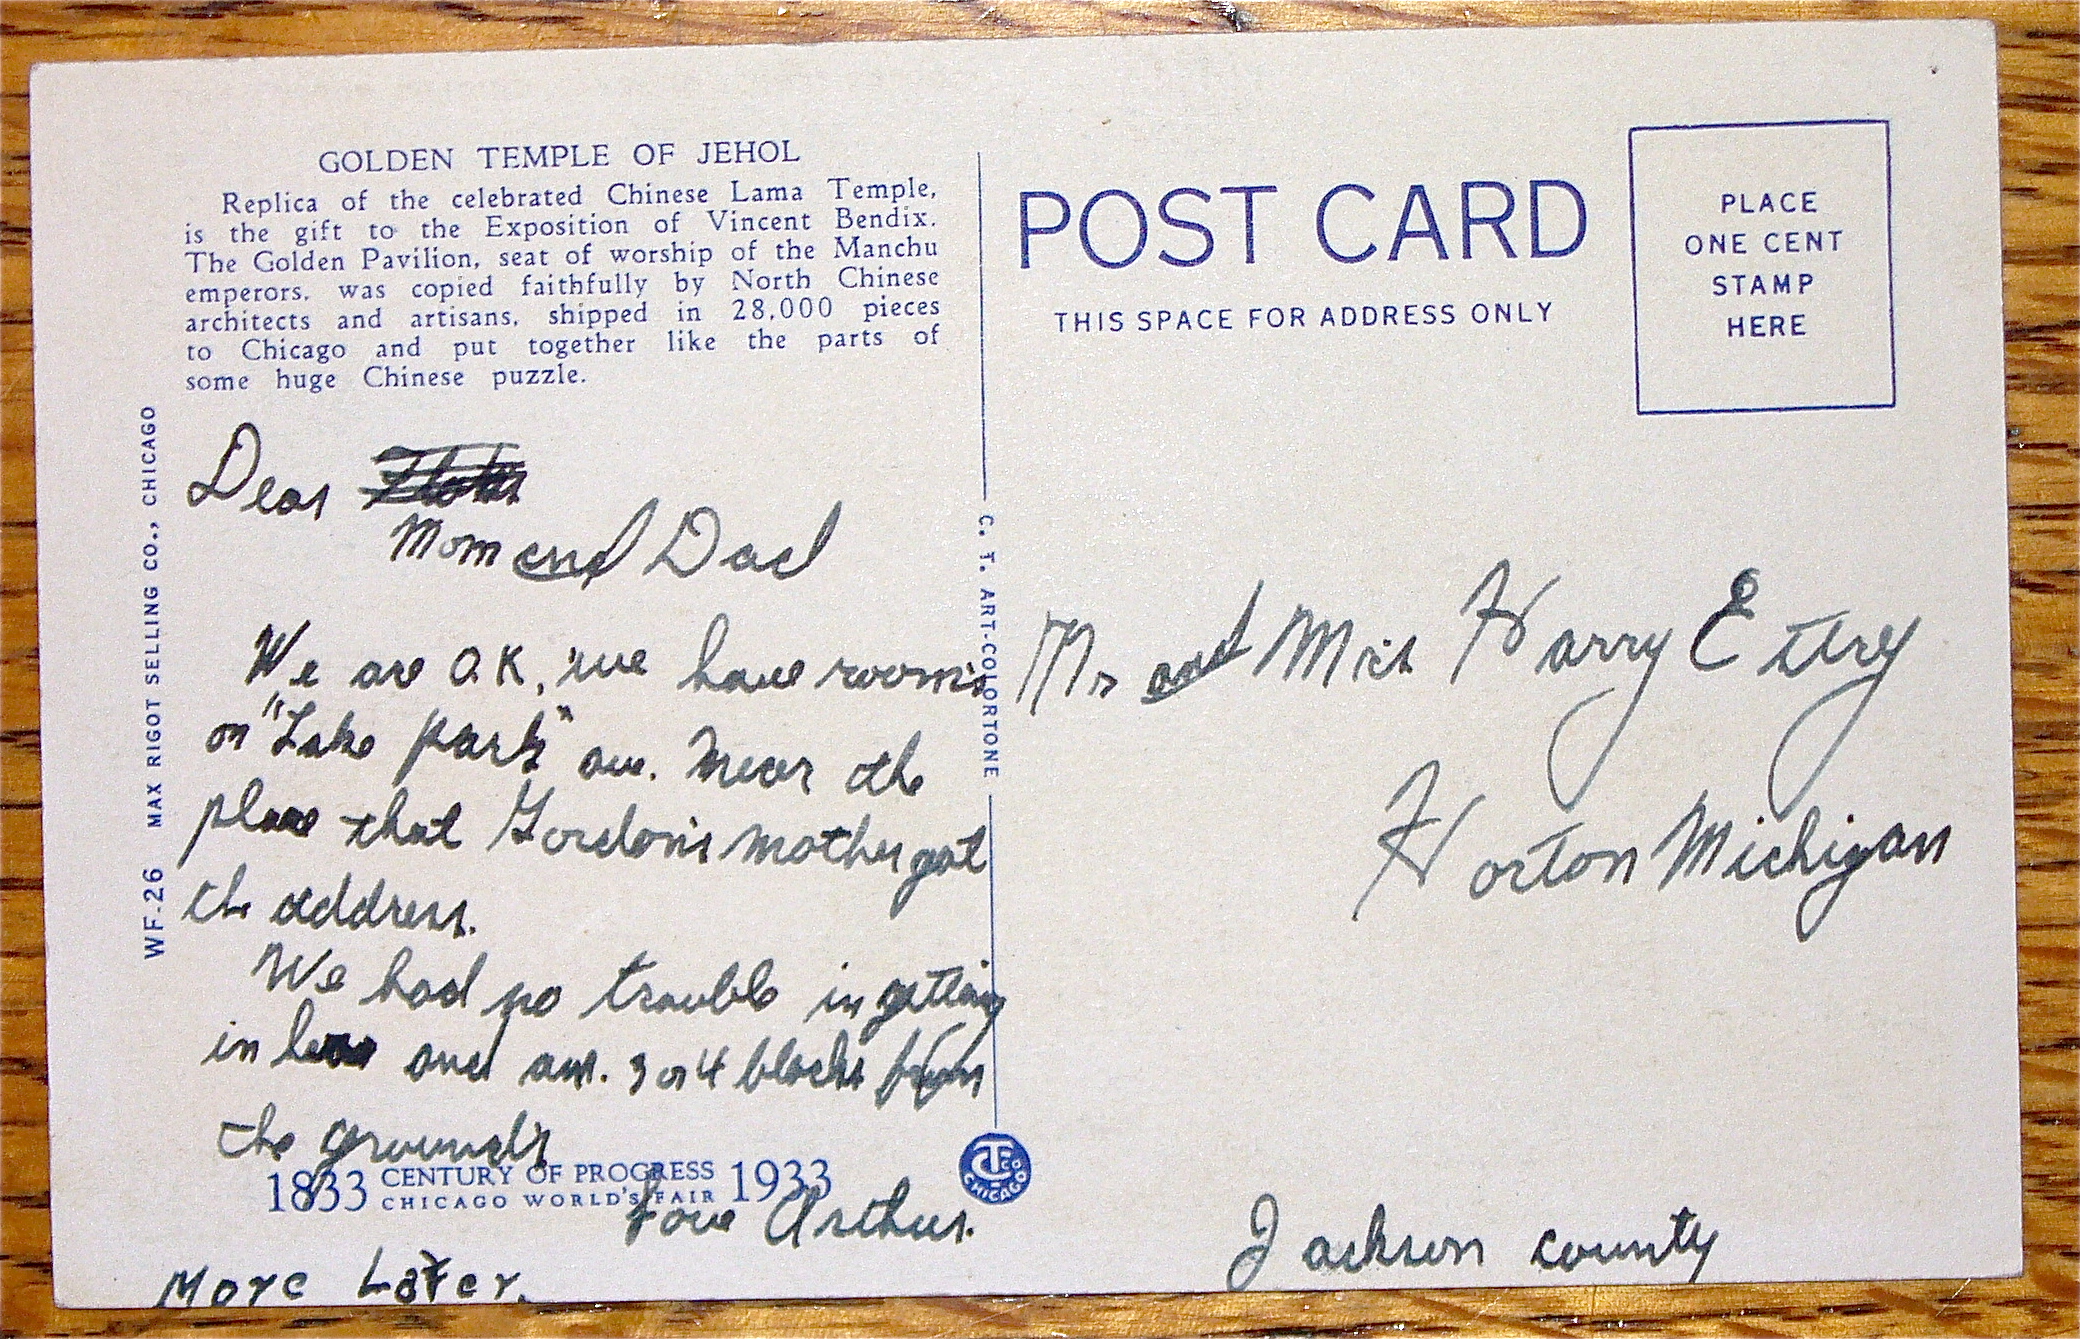 GOLDEN TEMPLE OF JEHOL
Replica of the celebrated Chinese Lama Temple,
is the gift to the Exposition of Vincent Bendix.
The Golden Pavilion, seat of worship of the Manchu
emperors, was copied faithfully by North Chinese
architects and artisans, shipped in 28,000 pieces
to Chicago and put together like the parts of
some huge Chinese puzzle.
WF-26 MAX RIGOT SELLING CO., CHICAGO
Dear
Mom and Dad
We are O.K, we have rooms
on "Lake park" ave. Near the
place that Gordon's mother got
the address.
We had no trouble in getting
in here and am. 3 or 4 blocks from
the grounds
1833 CENTURY OF PROGRESS 1933
CHICAGO WORLD'S FAIR
Love Arthur.
More Later.
C. T. ART-COLORTONE
CT CO CHICAGO
POST CARD
THIS SPACE FOR ADDRESS ONLY
PLACE
ONE CENT
STAMP
HERE
Mr and Mrs Harry
Horton Michigan
Jackson county